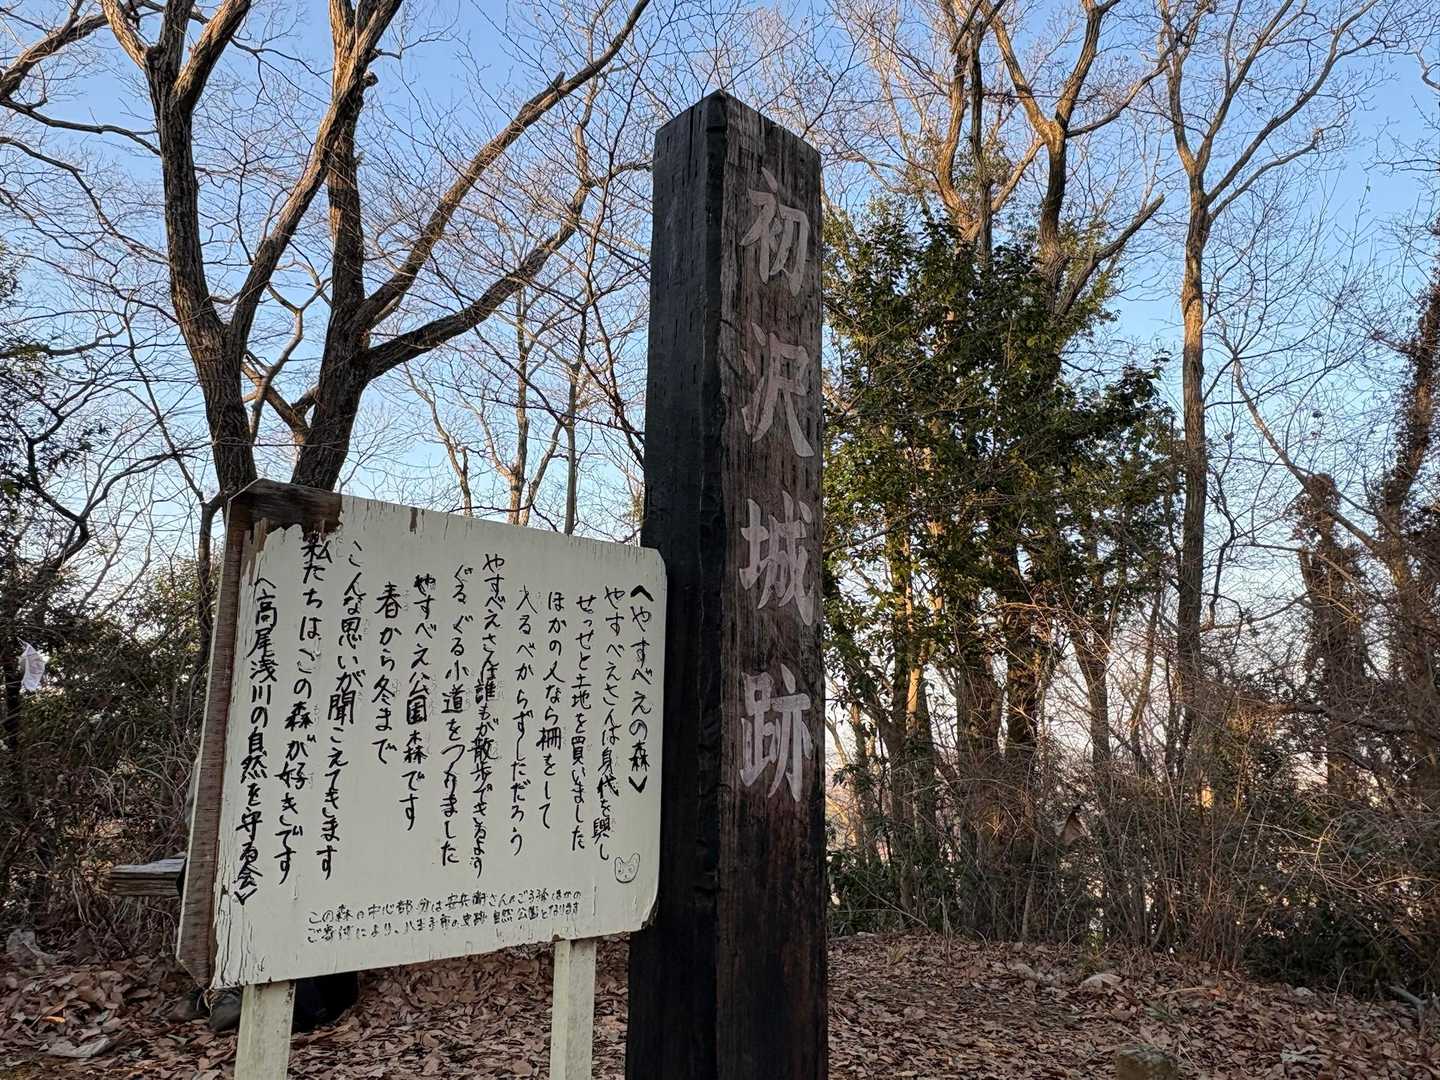 初沢城跡
〈やすべえの森〉
やすべえさんは身代を興し
せっせと土地を買いました
ほかの人なら柵をして
入るべからずしただろう
やすべえさんは誰もが散歩できるよう
ぐるぐる小道をつくりました
やすべえ公園森です
春から冬まで
こんな思いが聞こえてきます
私たちは、この森が好きです
〈高尾浅川の自然を守る会〉
この森の中心部分は安兵衛さんのご子孫ほかの
ご寄付により、八王子市の史跡 自然公園となります